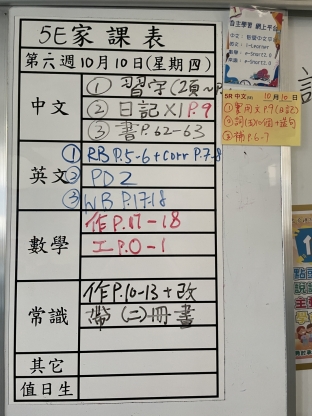 5E家課表
第六週10月10日(星期四)
中文
① 習字(2頁~P.
② 日記X1 P.9
③ 書P.62-63
英文
① RB P.5-6+Corr P.7-8
② PD2
③ WB P.17-18
數學
作P.17-18
工P.0-1
常識
作P.10-13+改
帶(二)冊書
其它
值日生
自主學習 網上平台
5R 中文 10月10日
① 實用文P.9(日記)
③ 補P.6-7